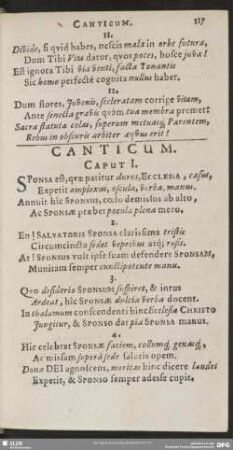 CANTICUM. 117
11.
Divido, si quid habes, nescis mala in orbe futura,
Dum Tibi Vita datur, quos potes, hosce juva!
Est ignota Tibi via venti, facta Tonantis
Sic homo perfectè cognita nullus habet.
12.
Dum flores, Juvenis, sceleratam corrige vitam,
Ante senecta gravis quàm tua membra premat!
Sacra statuta colas, superum metuasq; Parentem,
Rebus in obscuris arbiter æquus erit!
CANTICUM.
CAPUT I.
SPONSA est, quæ patitur duros, ECCLESIA, casus,
Expetit amplexus, oscula, verba, manus.
Annuit hic SPONSUS, cœlo demissus ab alto,
Ac SPONSÆ præbet pocula plena mero.
2.
En! SALVATORIS SPONSA clarissima tristis
Circumcincta sedet vepribus atq; rosis.
At! SPONSUS vult ipse suam defendere SPONSAM,
Munitam semper cunctipotente manu.
3.
Quo desiderio SPONSUM suspiret, & intus
Ardeat, hic SPONSÆ dulcia verba docent.
In thalamum conscendenti hinc Ecclesia CHRISTO
Jungitur, & SPONSO dat pia SPONSA manus.
4.
Hic celebrat SPONSÆ faciem, collumq; genasq;,
Ac missam superâ sede salutis opem.
Dona DEI agnoscens, meritas hinc dicere laudes
Expetit, & SPONSO semper adesse cupit.